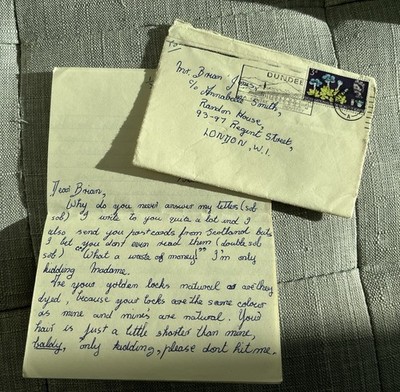 To
Mr Brian Jones,
c/o Annabelle Smith,
Randon House,
93-97 Regent Street,
LONDON, W.1.
DUNDEE
3D
Dear Brian,
Why do you never answer my letters (sob
sob) I write to you quite a lot and I
also send you postcards from Scotland but
I bet you don't even read them (double sob
sob) "What a waste of money!" I'm only
kidding Madame.
Are your golden locks natural or are they
dyed, because your locks are the same colour
as mine and mine's are natural. Your
hair is just a little shorter than mine,
baldy, only kidding, please don't hit me.